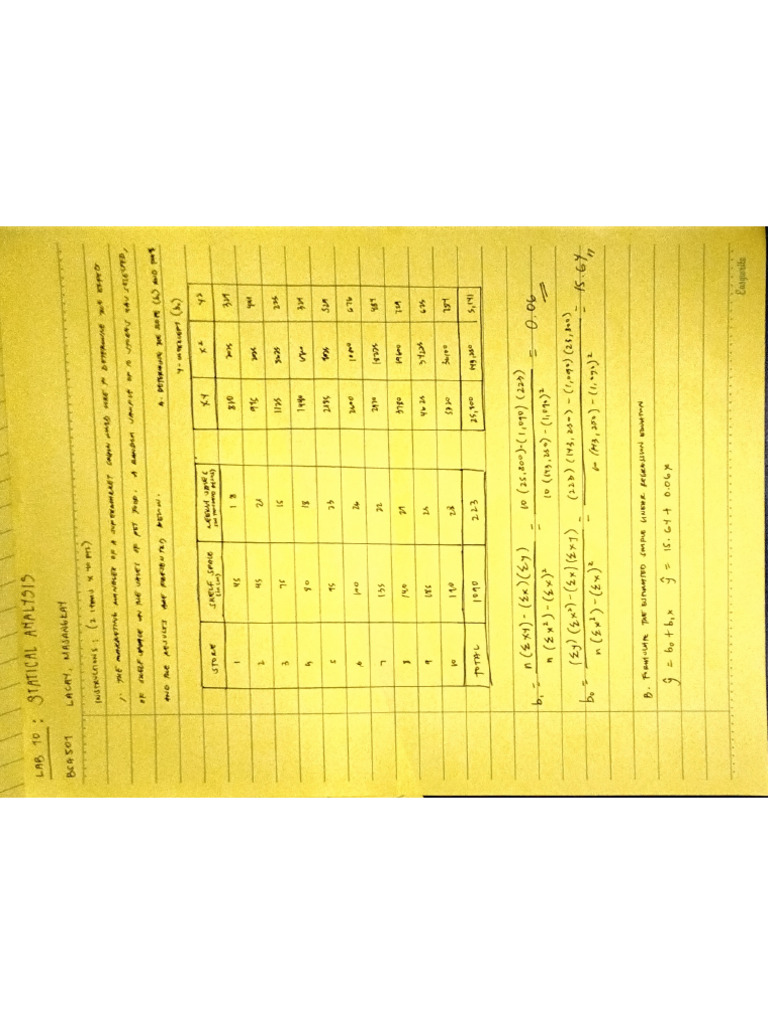 LAB 10 : STATICAL ANALYSIS
BCA501 LACAY, MASANGKAY
INSTRUCTIONS : (2 ITEMS X PTS)
1. THE MARKETING MANAGER OF A SUPERMARKET CHAIN WOULD LIKE TO DETERMINE THE EFFECT
OF SHELF SPACE ON THE SALES OF PET FOOD. A RANDOM SAMPLE OF 10 STORES WAS SELECTED,
AND THE RESULTS ARE PRESENTED BELOW. A. DETERMINE THE SLOPE (b₁) AND
Y-INTERCEPT (b₀)
STORE SHELF SPACE WEEKLY SALES XY X² Y²
1 45 18 810 2025 324
2 45 21 945 2025 441
3 75 15 1125 5625 225
4 80 18 1440 324
5 95 23 2185 529
6 100 26 2600 676
7 135 22 2970 18225 484
8 140 27 3780 19600 729
9 185 25 4625 34225 625
10 190 28 5320 36100 784
TOTAL 1090 223 25,800 143,250 5,141
b₁ = n(Σxy) - (Σx)(Σy) / n(Σx²) - (Σx)² = 10(25,800)-(1,090)(223) / 10(143,250)-(1,090)² = 0.06
b₀ = (Σy)(Σx²)-(Σx)(Σxy) / n(Σx²)-(Σx)² = (223)(143,250)-(1,090)(25,800) / 10(143,250)-(1,090)² = 15.64
B. FORMULATE THE ESTIMATED SIMPLE LINEAR REGRESSION EQUATION
ŷ = b₀ + b₁x ŷ = 15.64 + 0.06x
Easywrite